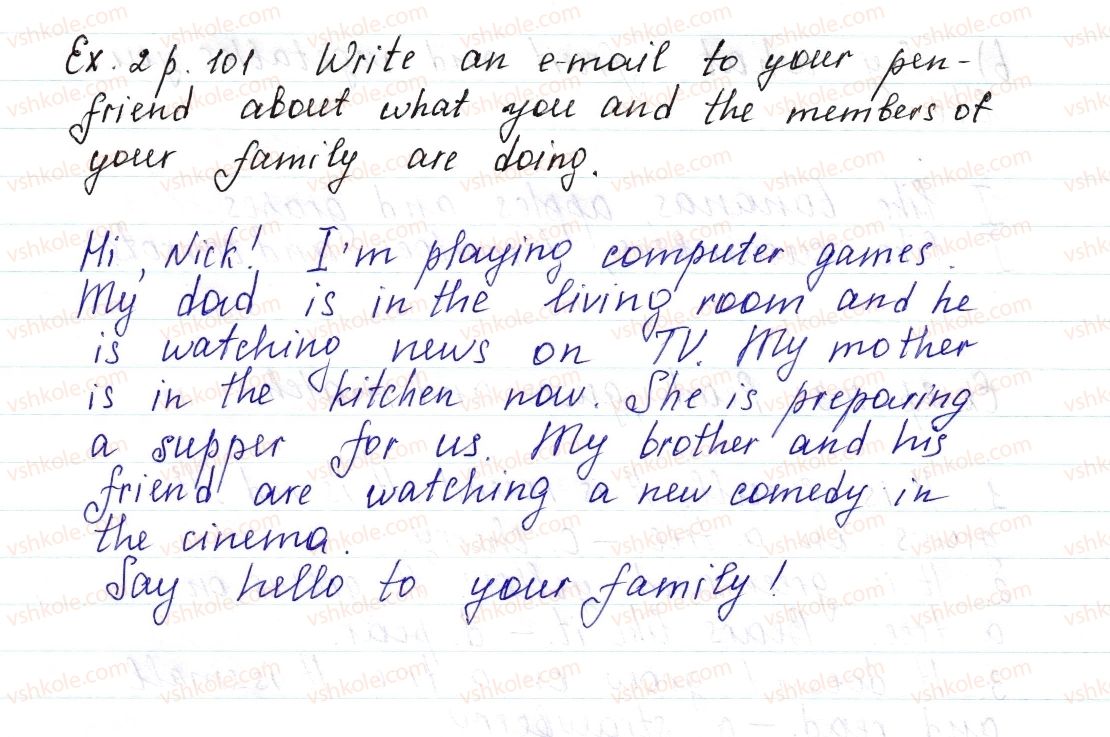 Ex. 2 p. 101 Write an e-mail to your pen-
friend about what you and the members of
your family are doing.
Hi, Nick! I'm playing computer games.
My dad is in the living room and he
is watching news on TV. My mother
is in the kitchen now. She is preparing
a supper for us. My brother and his
friend are watching a new comedy in
the cinema.
Say hello to your family!
vshkole.com